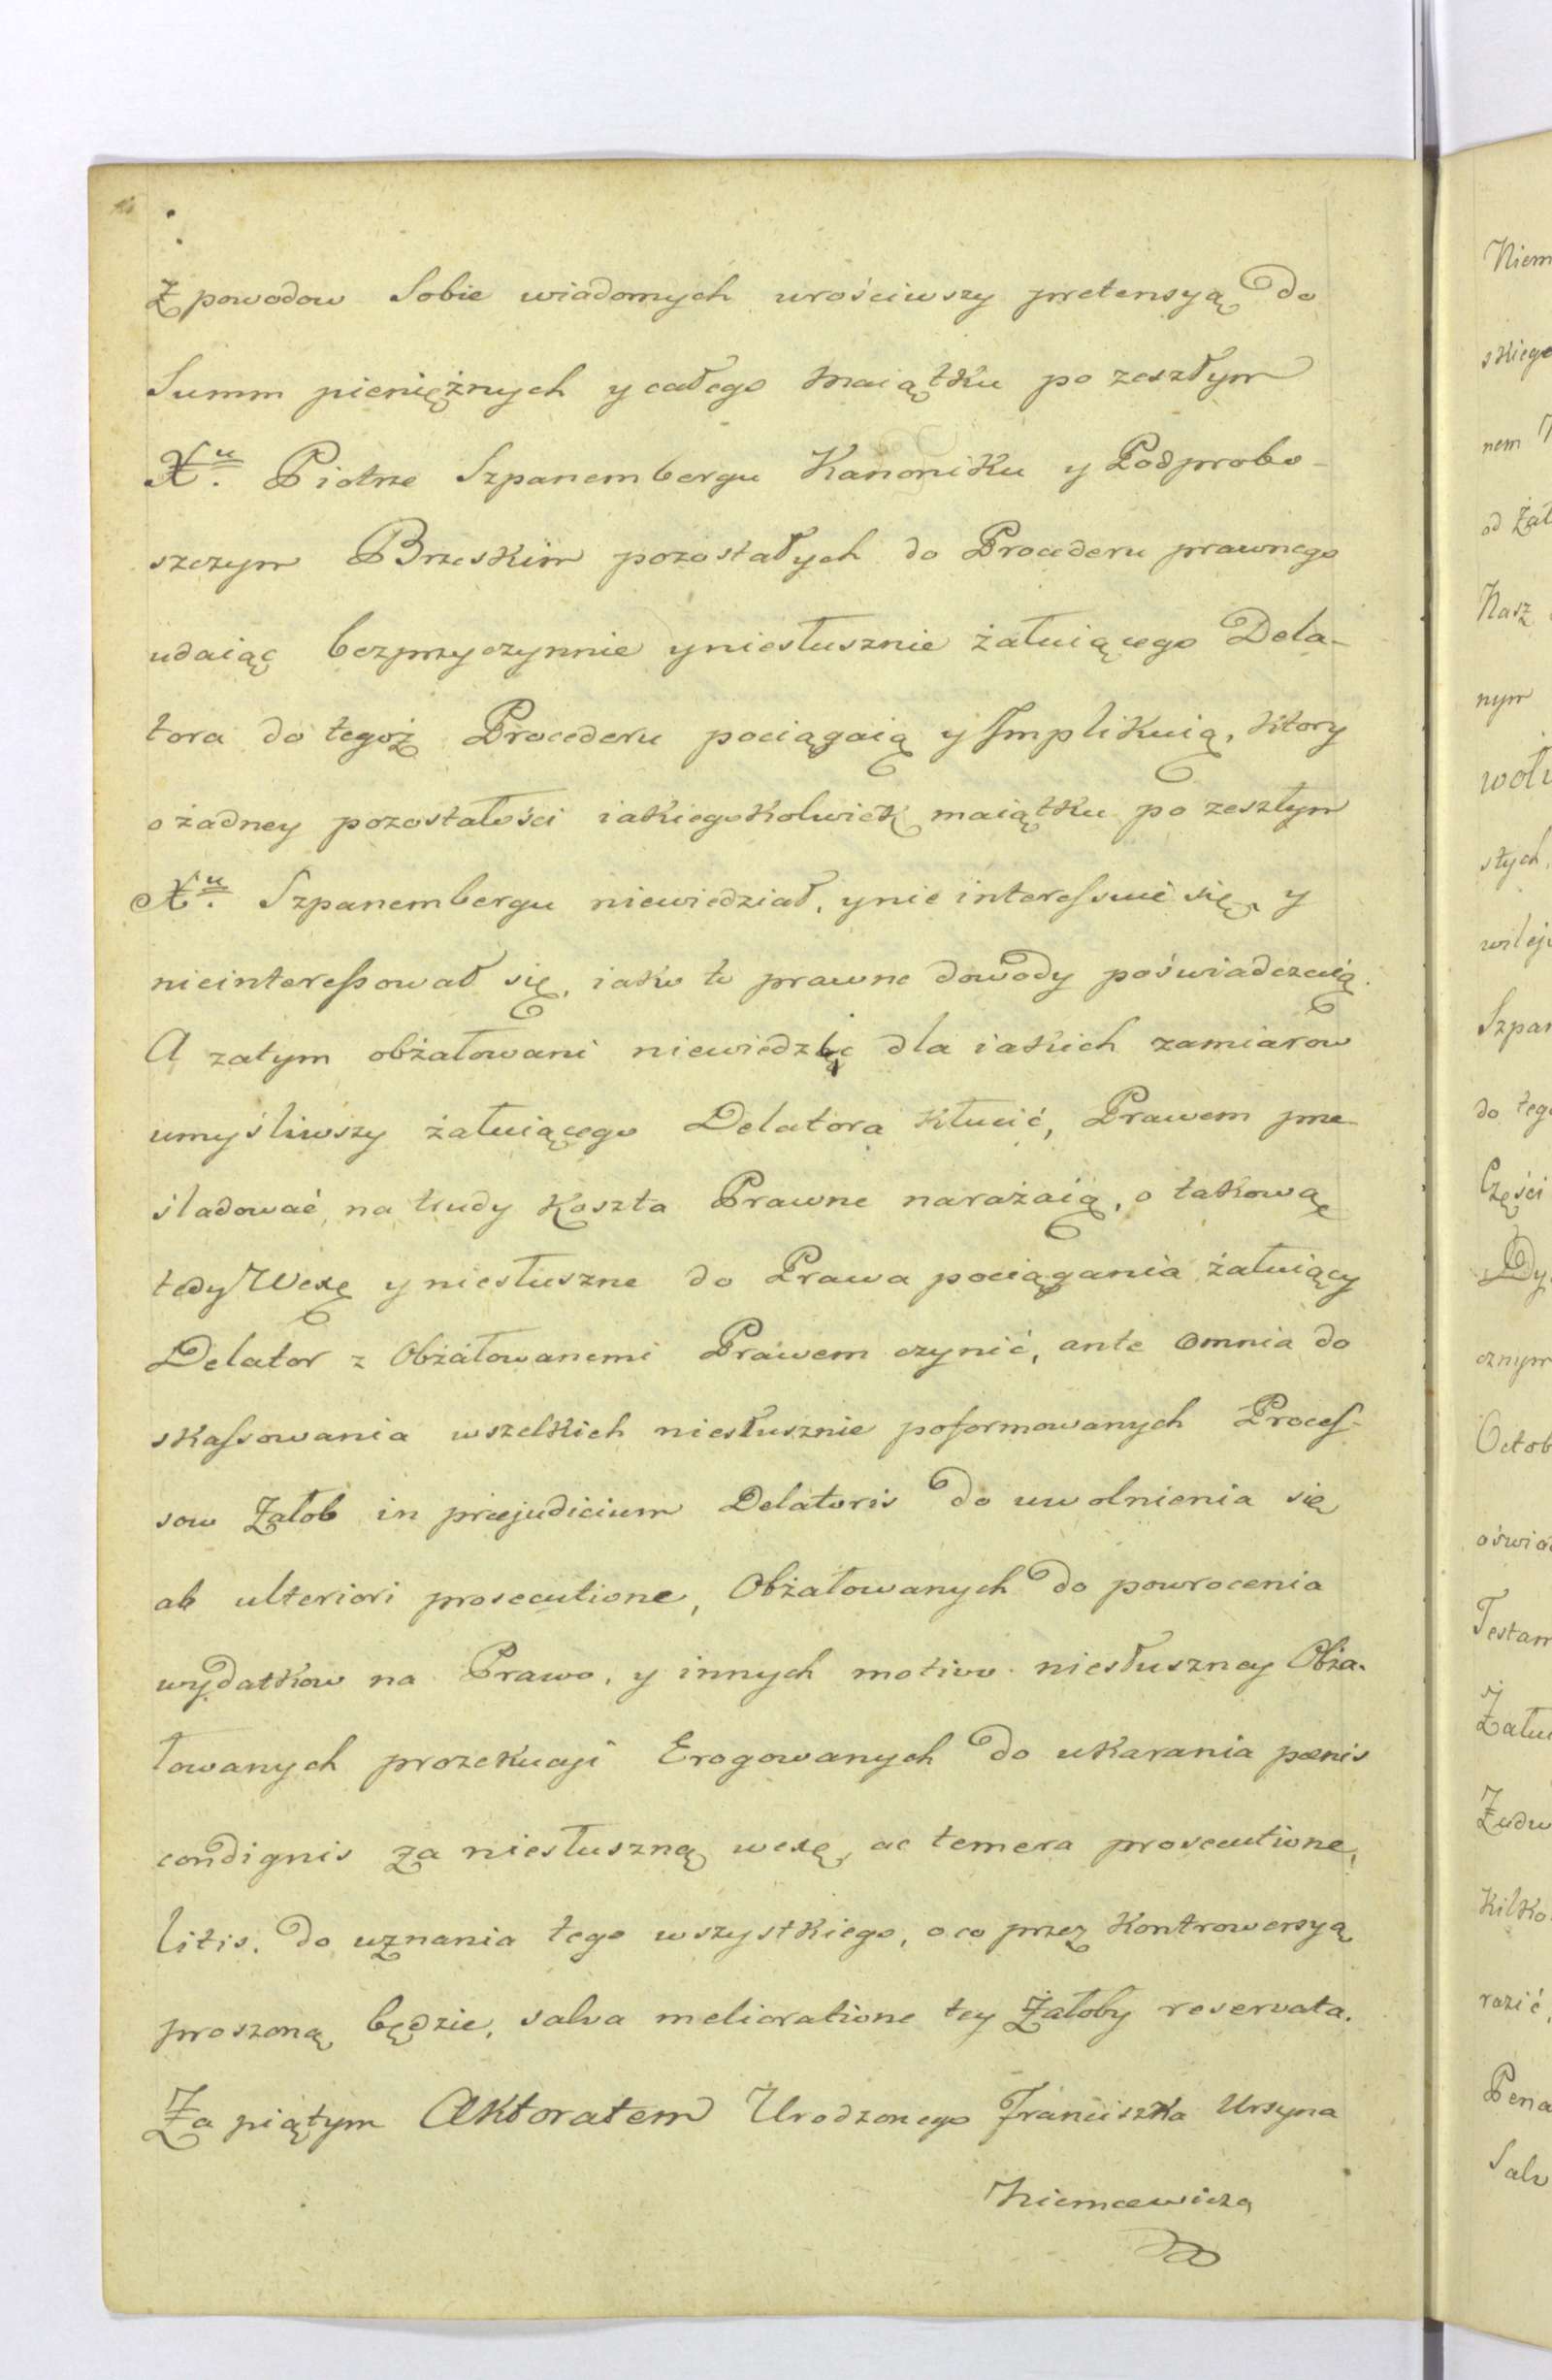 Z powodow Sobie wiadomych urościwszy pretensyą do
Summ pieniężnych y całego Maiątku po zeszłym
Xu. Piotrze Szpanembergu Kanoniku y Podprobo-
szczym Brzeskim pozostałych do Procederu prawnego
udaiąc bezprzyczynnie y niesłusznie żałuiącego Dela-
tora do tegoż Procederu pociągaią y Implikuią, ktory
o żadney pozostałości iakiegokolwiek maiątku po zeszłym
Xu. Szpanembergu niewiedział, y nie interessuie się, y
nieinteressował się, iako to prawne dowody poświadczaią.
A zatym obżałowani niewiedzieć dla iakich zamiarow
umyśliwszy żałuiącego Delatora kłucić, Prawem prze
śladować, na trudy koszta Prawne narażaią, o takową
tedy Wexę y niesłuszne do Prawa pociągania żałuiący
Delator z Obżałowanemi Prawem czynić, ante omnia do
skassowania wszelkich niesłusznie poformowanych Proces-
sow Załob in præjudicium Delatoris do uwolnienia się
ab ulteriori prosecutione, Obżałowanych do powrocenia
wydatkow na Prawo, y innych motivo niesłuszney Obża-
łowanych prozekucyi Erogowanych do ukarania pænis
condignis za niesłuszną wexę, ac temera prosecutione,
litis, do uznania tego wszystkiego, o co przez Kontrowersyą
proszoną będzie, salva melioratione tey Żałoby reservata.
Za piątym Aktoratem Urodzonego Franciszka Ursyna
Niemcewicza
Niem
skiego
nem
od Żał
Nasz
nym
stych
wilej
Szpan
do teg
Części
Dy
cznym
Octob
oświa
Testam
Żału
Kilko
razić
Pena
Salv